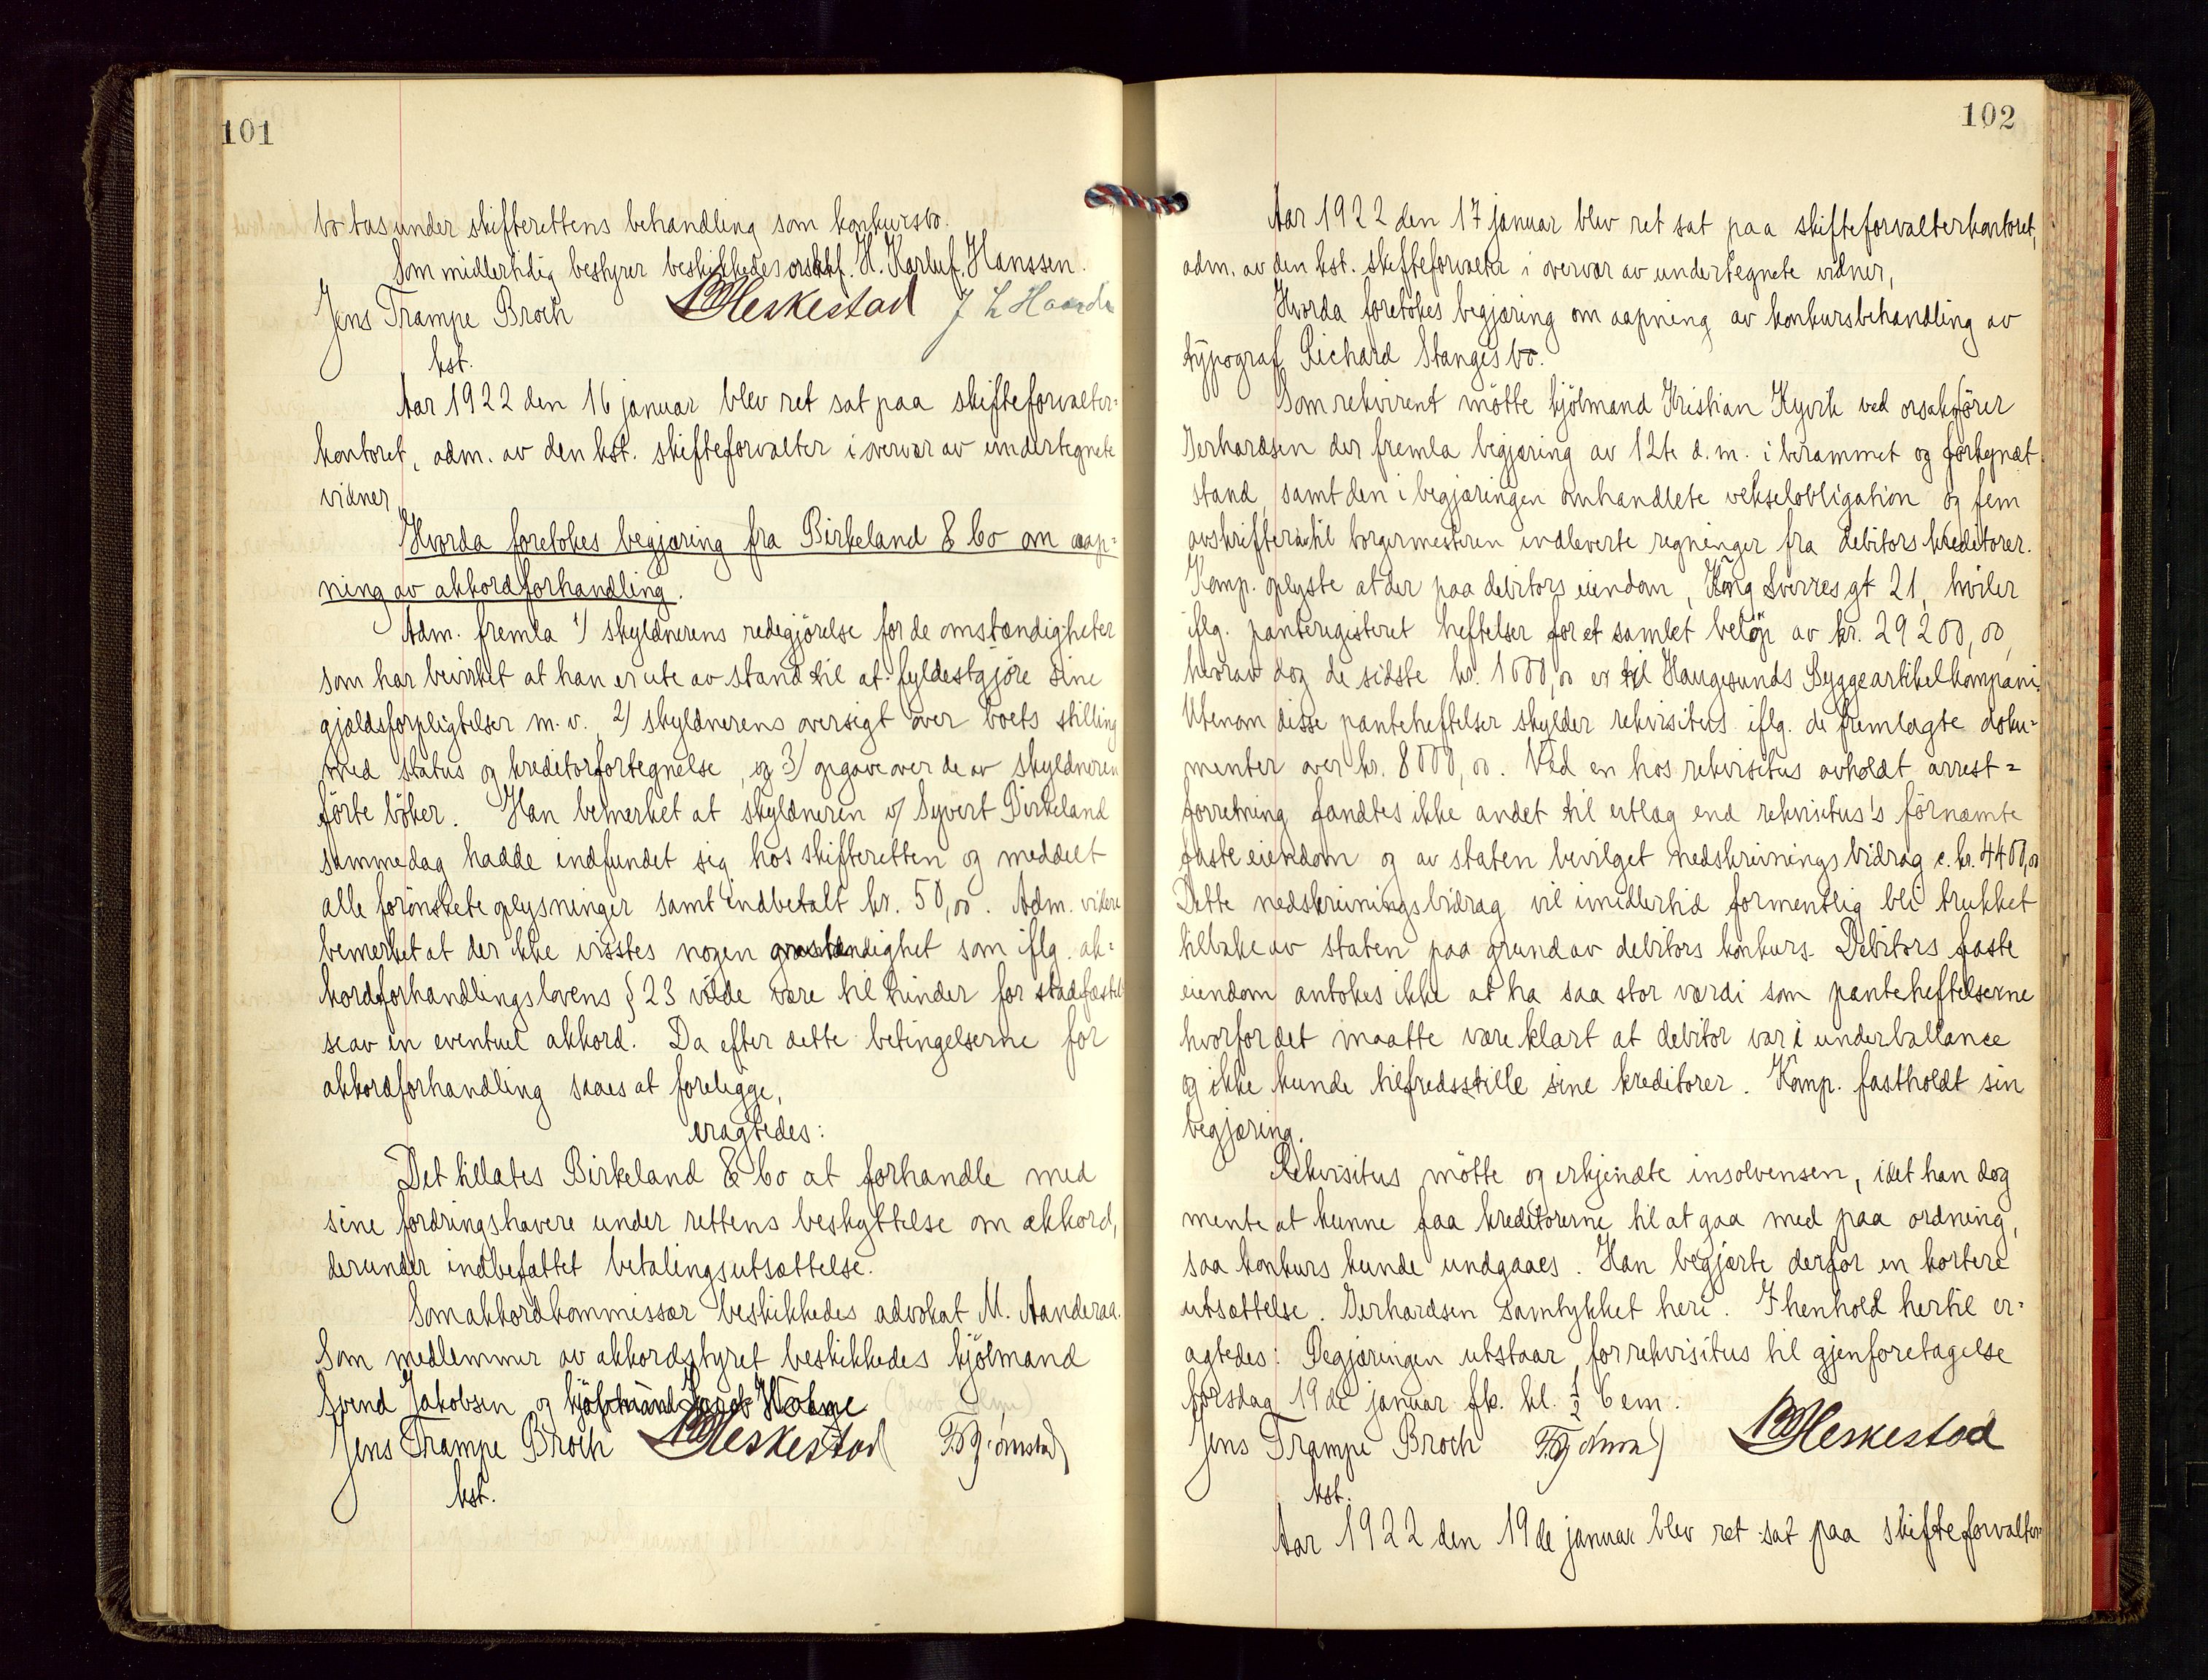 101
bo tas under skifterettens behandling som konkursbo.
Som midlertidig bestyrer beskikkedes orskf. H. Karluf Hanssen.
Jens Trampe Broch Heskestad J L Haarde
kst.
Aar 1922 den 16 januar blev ret sat paa skifteforvalter-
kontoret, adm. av den kst. skifteforvalter i overvær av undertegnete
vidner,
Hvorda foretokes begjæring fra Birkeland & Co om aap-
ning av akkordforhandling.
Adm. fremla 1) skyldnerens redegjörelse for de omstændigheter
som har bevirket at han er ute av stand til at fyldestgjöre sine
gjældsforpligtelser m.v. 2) skyldnerens oversigt over boets stilling
med status og kreditorfortegnelse, og 3) opgave over de av skyldneren
förte böker. Han bemerket at skyldneren v/ Syvert Birkeland
samme dag hadde indfundet sig hos skifteretten og meddelt
alle forönskete oplysninger samt indbetalt kr. 50,00. Adm. videre
bemerket at der ikke visstes nogen omstændighet som iflg. ak-
kordforhandlingslovens § 23 vilde være til hinder for stadfæstel-
se av en eventuel akkord. Da efter dette betingelserne for
akkordforhandling saaes at foreligge,
eragtedes:
Det tillates Birkeland & Co at forhandle med
sine fordringshavere under rettens beskyttelse om akkord,
derunder indbefattet betalingsutsættelse.
Som akkordkommissær beskikkedes advokat M. Aanderaa.
Som medlemmer av akkordstyret beskikkedes kjölmand
Svend Jakobsen og kjöbmand Jacob Holme
Jens Trampe Broch Heskestad
kst.
102
Aar 1922 den 17 januar blev ret sat paa skifteforvalterkontoret,
adm. av den kst. skifteforvalter i overvær av undertegnete vidner,
Hvorda foretokes begjæring om aapning av konkursbehandling av
typograf Richard Stanges bo.
Som rekvirent mötte kjölmand Kristian Kyvik ved orsakförer
Gerhardsen der fremla begjæring av 12te d.m. i berammet og forkyndt
stand, samt den i begjæringen omhandlete vekselobligation og fem
avskrifter av til borgermesteren indleverte regninger fra debitors kreditorer.
Komp. oplyste at der paa debitors eiendom, Kong Sverres gt 21, hviler
iflg. panteregisteret heftelser for et samlet belöp av kr. 29200,00,
hvorav dog de sidste kr. 1000,00 er til Haugesunds Byggeartikelkompani.
Utenom disse panteheftelser skylder rekvisitus iflg. de fremlagte doku-
menter over kr. 8000,00. Ved en hos rekvisitus avholdt arrest-
forretning fandtes ikke andet til utlæg end rekvisitus's förnæmte
faste eiendom og av staten bevilget nedskrivningsbidrag c. kr. 4400,00
Dette nedskrivningsbidrag vil imidlertid formentlig bli trukket
tilbake av staten paa grund av debitors konkurs. Debitors faste
eiendom antokes ikke at ha saa stor værdi som panteheftelserne
hvorfor det maatte være klart at debitor var i underballance
og ikke kunde tilfredsstille sine kreditorer. Komp. fastholdt sin
begjæring.
Rekvisitus mötte og erkjendte insolvensen, idet han dog
mente at kunne faa kreditorerne til at gaa med paa ordning,
saa konkurs kunde undgaaes. Han begjærte derfor en kortere
utsættelse. Gerhardsen samtykket heri. I henhold hertil er-
agtedes: Begjæringen utstaar for rekvisitus til gjenforetagelse
torsdag 19de januar fk. kl. ½ 6 em.
Jens Trampe Broch Heskestad
kst.
Aar 1922 den 19de januar blev ret sat paa skifteforvalter-